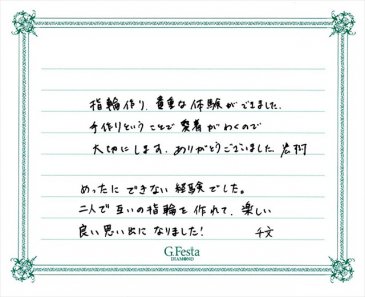 指輪作り、貴重な体験ができました。
手作りということで愛着がわくので
大切にします。ありがとうございました。宏樹
めったにできない経験でした。
二人で互いの指輪を作れて、楽しい
良い思い出になりました!　千文
G.Festa
DIAMOND